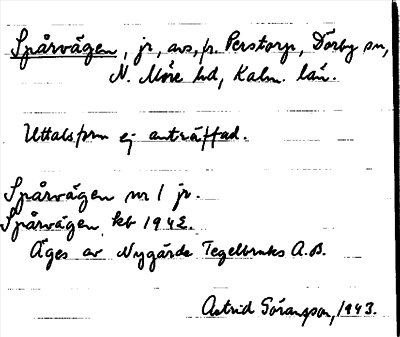 Spårvägen, jr, avs, fr. Perstorp, Dörby sn,
N. Möre hd, Kalm. län.
Uttalsfrm ej anträffad.
Spårvägen nr 1 jr.
Spårvägen kb 1942.
Äges av Nygärde Tegelbruks A.B.
Astrid Göransson, 1943.